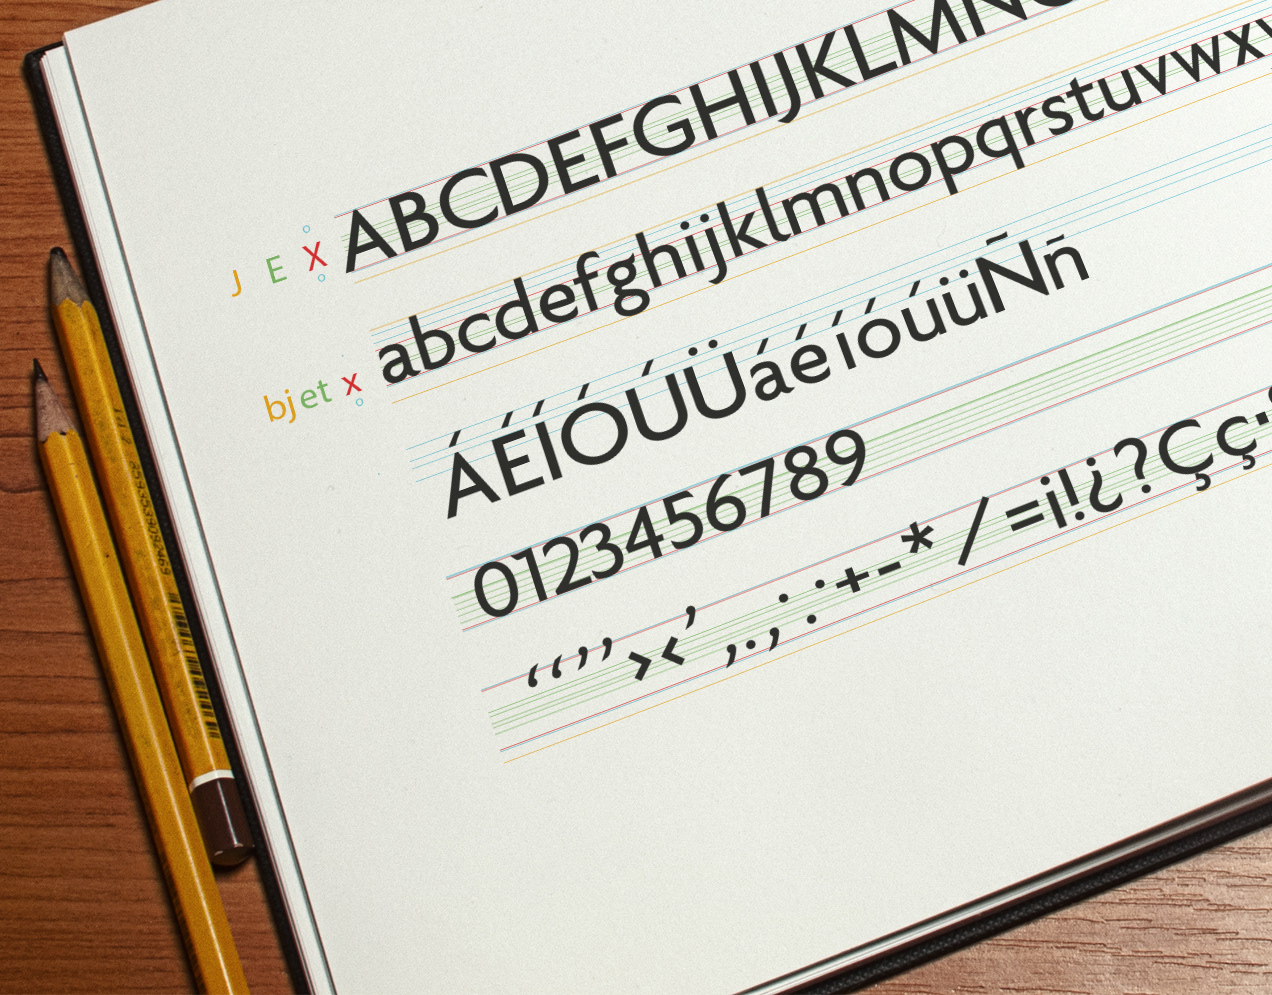 J E X ABCDEFGHIJKLMN
bjet x abcdefghijklmnopqrstuvwx
ÁÉÍÓÚÜáéíóúüÑñ
0123456789
“”›‹’,.;:+-*/=¡!¿?Çç·